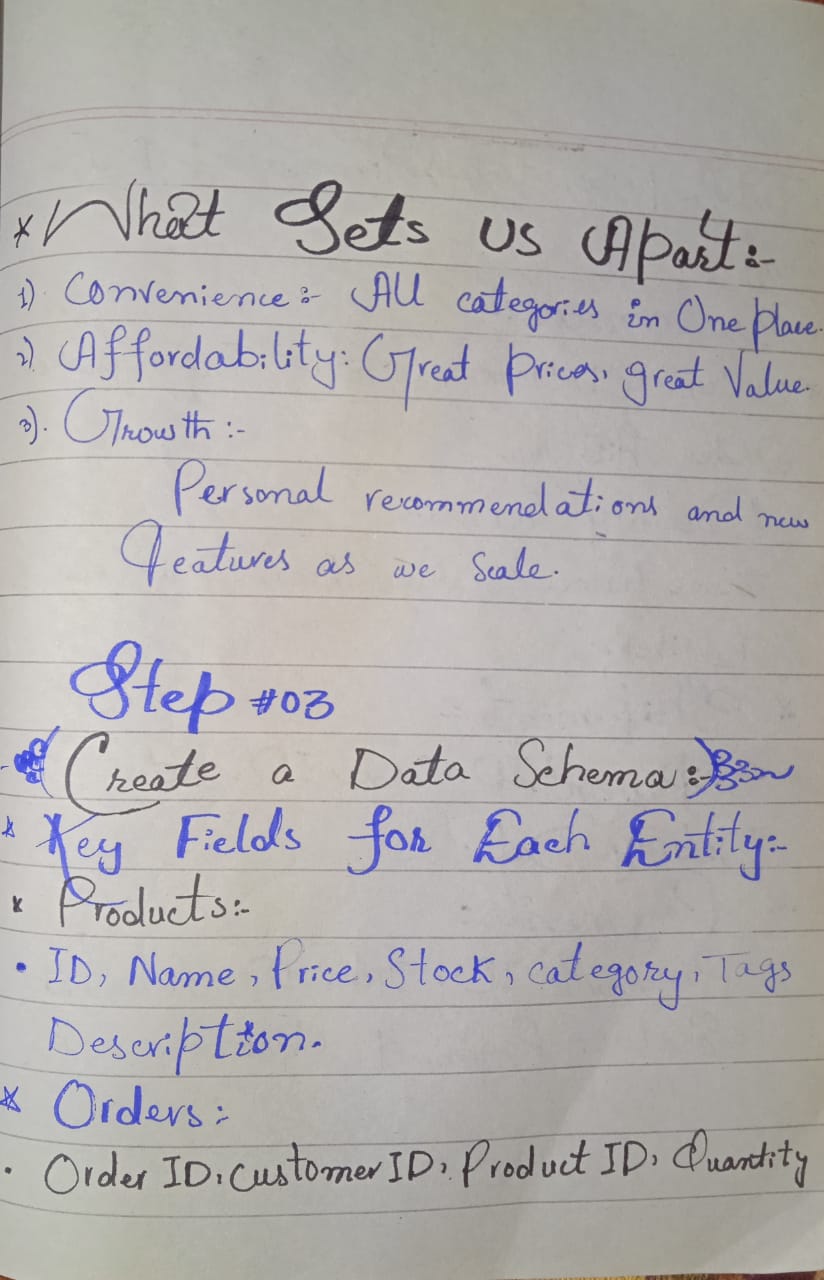 * What Sets Us Apart:-
1) Convenience:- All categories in One place.
2) Affordability: Great Prices, great Value.
3). Growth :-
Personal recommendations and new
features as we Scale.
Step #03
Create a Data Schema:-
* Key Fields for Each Entity:-
* Products:-
• ID, Name, Price, Stock, category, Tags
Description.
* Orders:
• Order ID, Customer ID, Product ID, Quantity